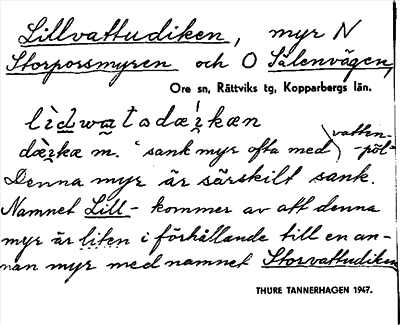 Lillvattudiken, myr N
Storporsmyren och O Sälenvägen,
Ore sn, Rättviks tg, Kopparbergs län.
dæ̀rkæ m. "sank myr ofta med vatten-
-pöl"
Denna myr är särskilt sank.
Namnet Lill- kommer av att denna
myr är liten i förhållande till en an-
nan myr med namnet Storvattudiken
THURE TANNERHAGEN 1947.